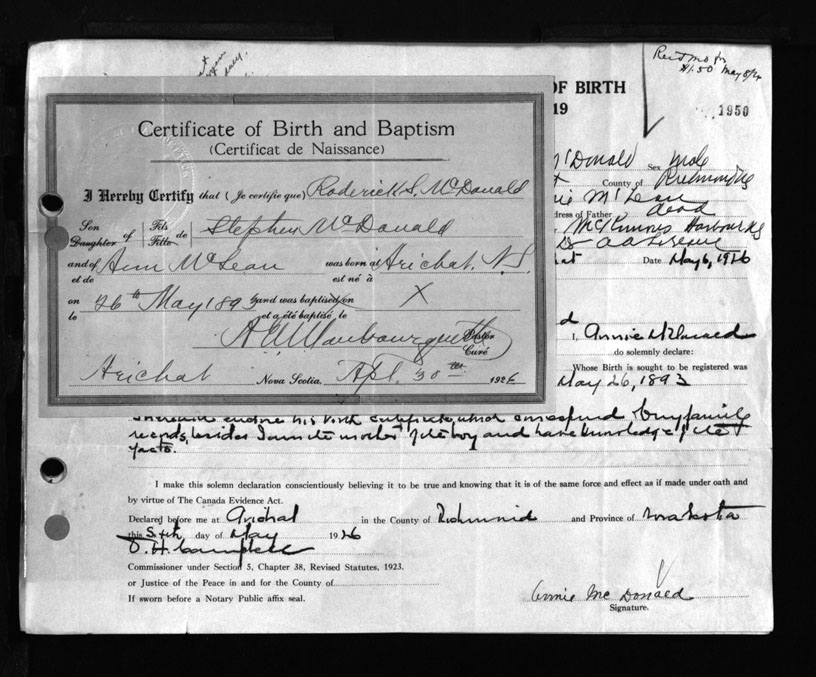 Rec'd mo fr
$1.50 May 8/26
OF BIRTH
19
1950
McDonald Sex Male
County of Richmond
McLean
dress of Father dead
McKinnons Harbour
Dr
hat Date May 6, 1926
Certificate of Birth and Baptism
(Certificat de Naissance)
I Hereby Certify that (Je certifie que) Roderick S. McDonald
Son Daughter of Fils Fille de Stephen McDonald
and of et de Ann McLean was born at est né à Arichat, N.S.
on le 26th May 1893 and was baptised on et a été baptisé le X
Pastor Curé
Arichat Nova Scotia, Apl. 30th 1926
d
I, Annie McDonald
do solemnly declare:
Whose Birth is sought to be registered was
May 26, 1893
enclose his birth certificate which correspond to my family
records, besides I am the mother of the boy and have knowledge of the
facts.
I make this solemn declaration conscientiously believing it to be true and knowing that it is of the same force and effect as if made under oath and
by virtue of The Canada Evidence Act.
Declared before me at Arichat in the County of Richmond and Province of
this Sixth day of May 1926
Commissioner under Section 5, Chapter 38, Revised Statutes, 1923.
or Justice of the Peace in and for the County of
If sworn before a Notary Public affix seal.
Annie McDonald
Signature.